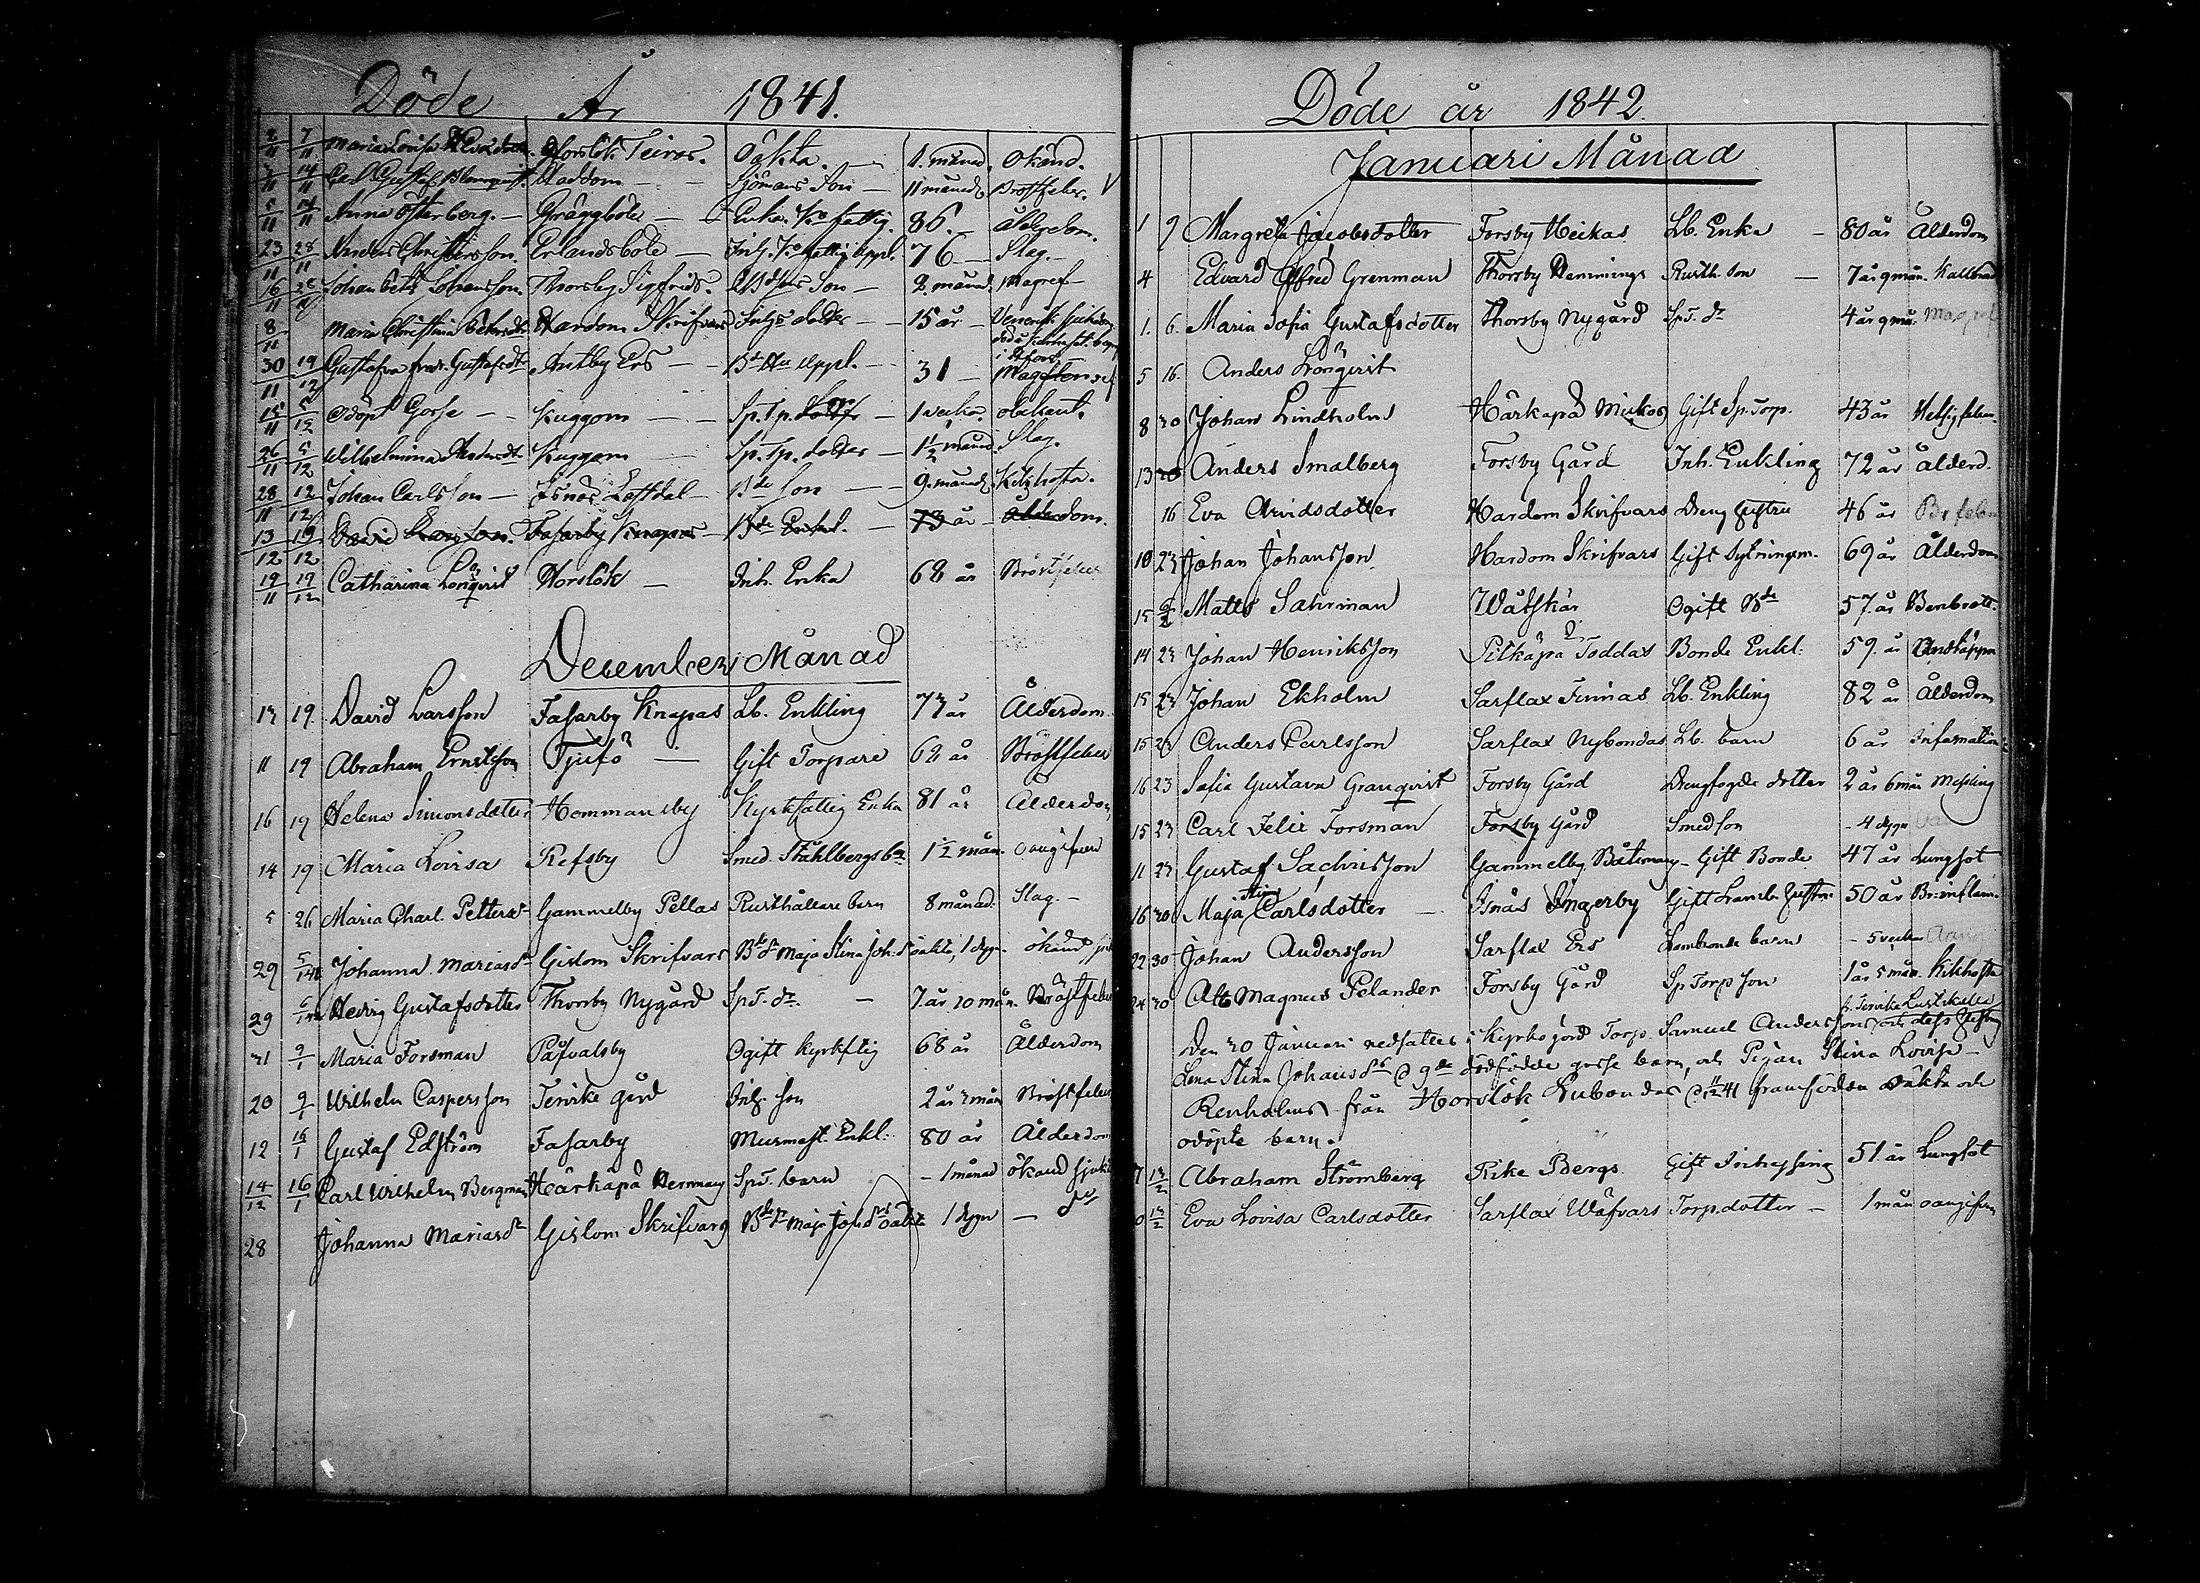 Döde År 1841.
2/11 7/11 Maria Lovisa Horslök Teiras. Oäkta. 1. månad, Okänd.
14/11 Carl Gustaf Blomqvist. Haddom Sjömans Son 11 månad. Bröstfeber.
5/11 14/11 Anna Österberg. Gräggböle Enka. Kr fattig. 86. Ålderdom.
23/11 28/11 Anders Christersson. Erlandsböle Inh. Kr fattig 76 Slag.
16/11 28/11 Johan Johansson. Thorsby Sigfrids. Son 2. månad. Magref
8/11 Maria Christina Hardom Skrifvars Inhs dotter 15 år Venerisk
30/11 19/12 Gustafva Gustafsdr Antby Ers 31
15/11 5/12 odöpt Gosse Kuggom Sp. Tp. 1 vecka obekant.
26/11 5/12 Wilhelmina Kuggom Sp. Tp. dotter 1 1/2 månad Slag.
28/11 12/12 Johan Carlsson Isnäs Bde Son 9. månad. Kikhosta.
13/12 19/12 David Larsson. Fasarby Knapas Bde Enkl. 73 år Ålderdom.
19/11 19/12 Catharina Lönqvist Horslök Inh. Enka 68 år Bröstfeber
December Månad
13 19. David Larsson Fasarby Knapas Lb. Enkling 73 år Ålderdom.
11 19 Abraham Ernstsson Tjufö Gift Torpare 62 år Bröstfeber
16 19 Helena Simonsdotter Hommansby Kyrkfattig Enka 81 år Ålderdom,
14 19 Maria Lovisa Refsby Smed. Ståhlbergs bn 1 1/2 mån. oangifven
5 26 Maria Charl. Pettersdr Gammelby Pellas Rusthållare barn 8 månad. Slag.
29 5/1 Johanna Mariasdr Gislom Skrifvars Bde dr Maja Stina Joh. dr oäkta, 1 dygn. okänd
29 6/1 Hedvig Gustafsdotter Thorsby Nygård SpT. dr. 7. år 10 mån. Bröstfeber
31 9/1 Maria Forsman Påfvalsby Ogift kyrkftig 68 år Ålderdom
20 9/1 Wilhelm Caspersson Tervike gård Inh. son 2 år 3 mån Bröstfeber
12 16/1 Gustaf Edström Fasarby Murmest. Enkl. 80 år Ålderdom
14/12 16/1 Carl Wilhelm Bergman Härkäpä Hemming SpT. barn 1 månad okänd sjukd
28 Johanna Mariasdr Gislom Skrifvars Bde dr Maja Joh. dr oäkta 1 dygn dο
Döde år 1842.
Januari Månad
1 9 Margreta Jacobsdotter Forsby Heikas Lb. Enka 80 år Ålderdom
4 Edvard Alfred Grenman Thorsby Hemmings Rusth. son 7 år 9 mån. Kallbrand
1. 6. Maria Sofia Gustafsdotter Thorsby Nygård SpT. dr 4 år 9 mån. Magref
5 16. Anders Lönqvist
8 30 Johan Lindholm Härkäpä Mickos Gift Sp. Torp. 43 år
13 Anders Smalberg Forsby Gård Inh. Enkling 72 år Ålderd.
16 Eva Arvidsdotter Hardom Skrifvars Dreng hustru 46 år Br. feber
10 23 Johan Johansson Hardom Skrifvars Gift Sytningsm. 69 år Ålderdom
15 6/2 Matts Sahrman Wåtskär Ogift Bde 57. år Benbrott.
14 23 Johan Henriksson Pitkäpä Toddas Bonde Enkl. 59. år Andtäppa
15 23 Johan Ekholm Sarflax Finnas Lb. Enkling 82 år Ålderdom
15 23 Anders Carlsson Sarflax Nybondas Lb. barn 6 år
16 23 Sofia Gustava Granqvist Forsby Gård Drengfogde dotter 2 år 6 mån Messling
15 23 Carl Felix Forsman Forsby Gård Smedson 4 dygn
11 23 Gustaf Sachrisson Gammelby Båtsmans Gift Bonde 47 år Lungsot
16 30 Maja Stina Carlsdotter Isnäs Ingerby Gift Lamb. hustru 50 år Br. inflam.
22 30 Johan Andersson Sarflax Ers Lambonde barn 5 veckor
24 30 Alb Magnus Pelander Forsby Gård Sp Torp son 1 år 5 mån. Kikhosta
Den 30 Januari nedsattes i Kyrkogård Torp. Samuel Anderssons och dess hustru
Lena Stina Johansdr d 9de dödfödde gosse barn, och Pigan Stina Lovisa
Renholms från Horslök Nybondas framfödda oäkta och
odöpta barn.
7 13/2 Abraham Strömberg Rike Bergs Gift Inhysing 51 år Lungsot
13/2 Eva Lovisa Carlsdotter Sarflax Wäfvars Torp. dotter 1 mån oangifven